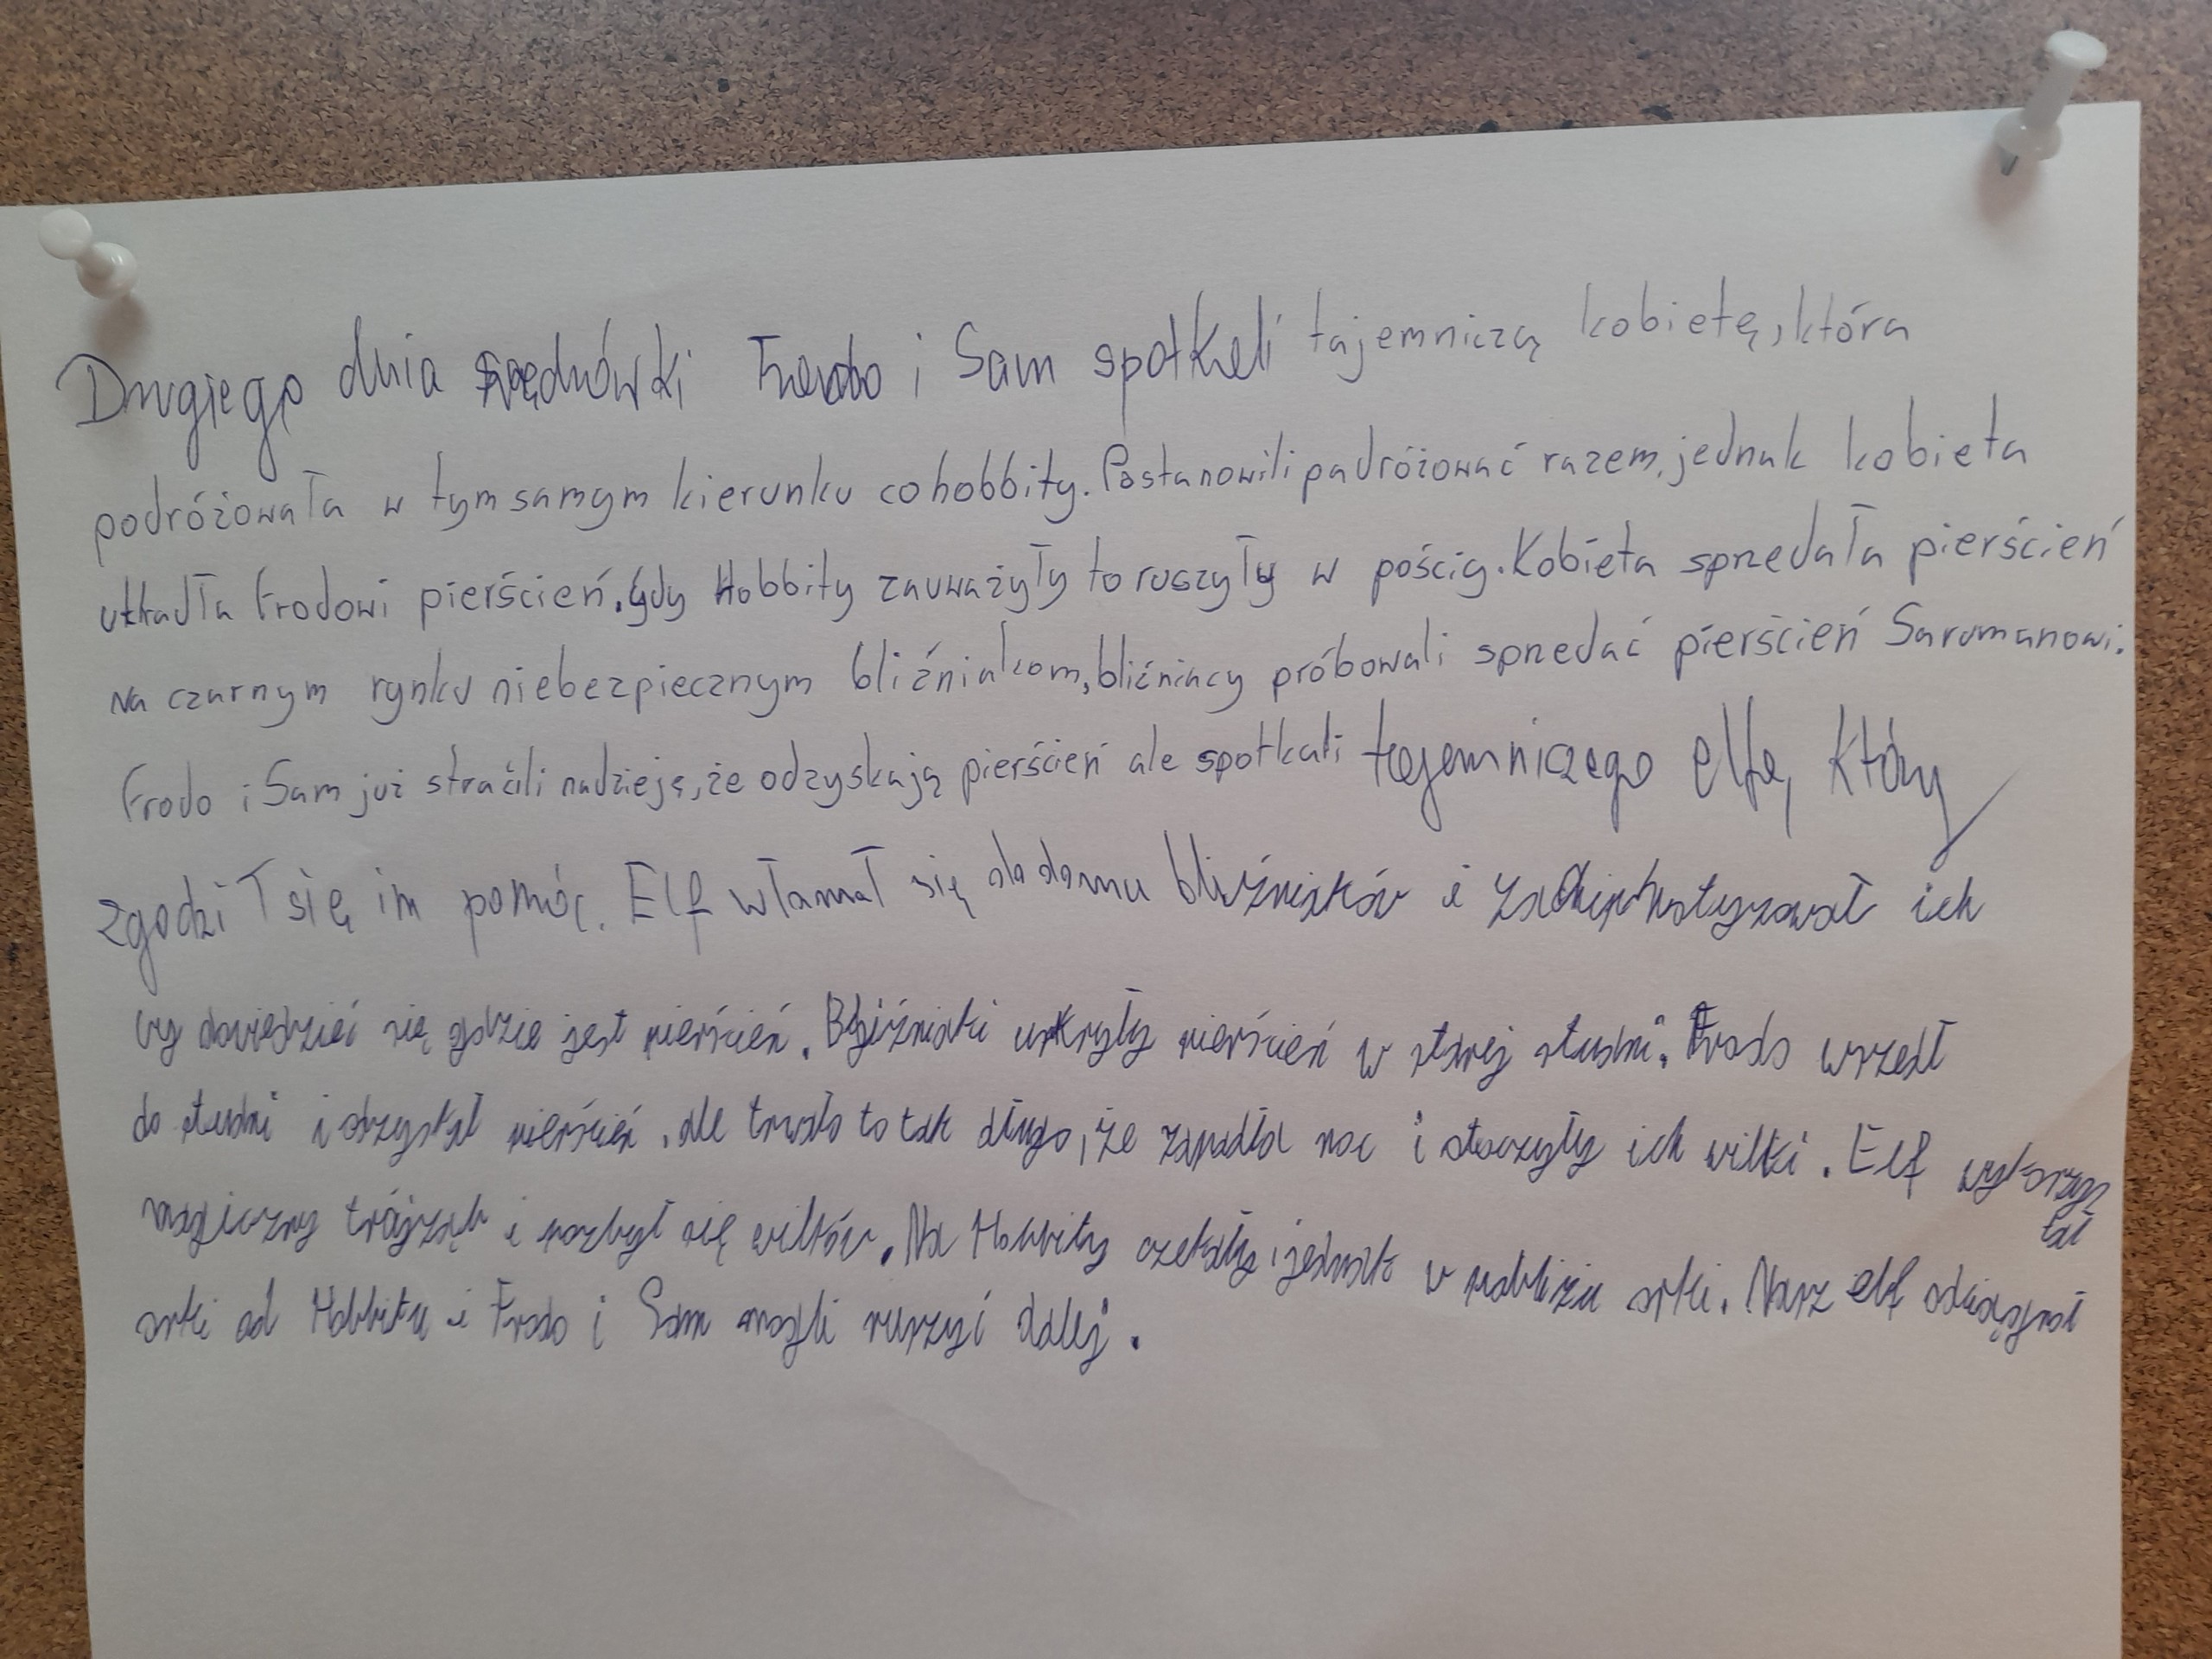 Drugiego dnia wędrówki Frodo i Sam spotkali tajemniczą kobietę, która
podróżowała w tym samym kierunku co hobbity. Postanowili podróżować razem, jednak kobieta
ukradła Frodowi pierścień. Gdy Hobbity zauważyły to ruszyły w pościg. Kobieta sprzedała pierścień
na czarnym rynku niebezpiecznym bliźniakom, bliźniacy próbowali sprzedać pierścień Sarumanowi.
Frodo i Sam już stracili nadzieję, że odzyskają pierścień ale spotkali tajemniczego elfa, który
zgodził się im pomóc. Elf włamał się do domu bliźniaków i zachipnotyzował ich
by dowiedzieć się gdzie jest pierścień. Bliźniaki ukryły pierścień w starej studni. Frodo wszedł
do studni i odzyskał pierścień, ale trwało to tak długo, że zapadła noc i otoczyły ich wilki. Elf wykorzys
tał
magiczny trójząb i pozbył się wilków. Na Hobbity czekały jednak w pobliżu orki. Nasz elf odciągnął
orki od Hobbitów i Frodo i Sam mogli ruszyć dalej.